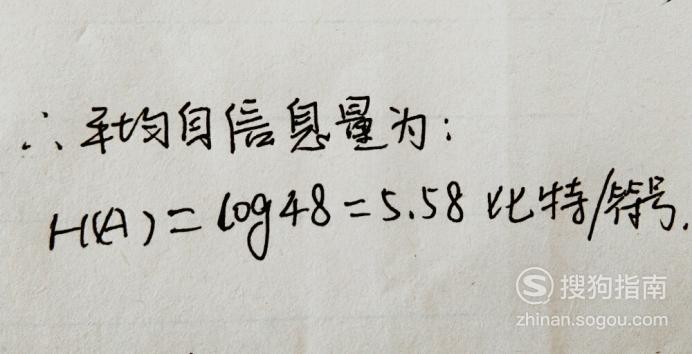 ∴平均自信息量为:
H(A)=log48=5.58 比特/符号.
搜狗指南
zhinan.sogou.com